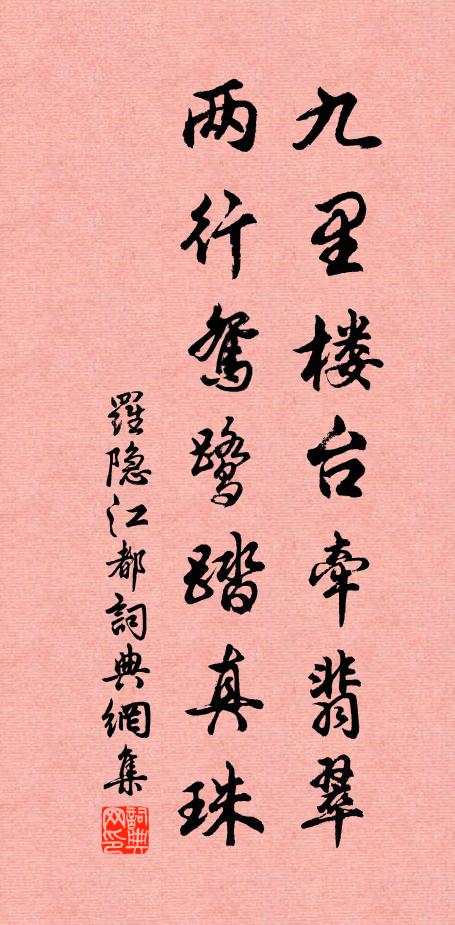 九里楼台牵翡翠
两行鸳鹭踏真珠
羅隐江都詞典網集
詞典网印